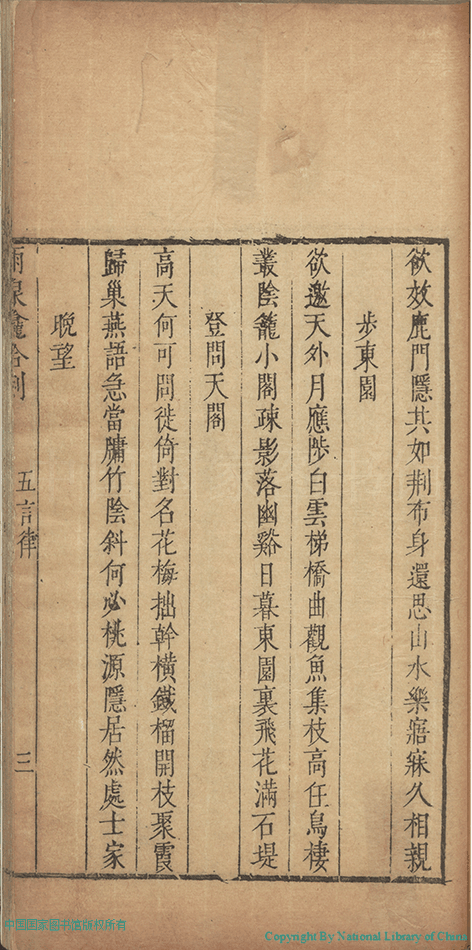 欲效鹿門隱其如荆布身還思山水樂寤寐久相親
步東園
欲邀天外月應陟白雲梯橋曲觀魚集枝高任鳥棲
叢陰籠小閣疎影落幽谿日暮東園裏飛花滿石堤
登問天閣
高天何可問徙倚對名花梅拙幹橫鐵榴開枝聚霞
歸巢燕語急當牖竹陰斜何必桃源隱居然處士家
晩望
雨泉龕合刻 五言律 三
中国国家图书馆版权所有
Copyright By National Library of China